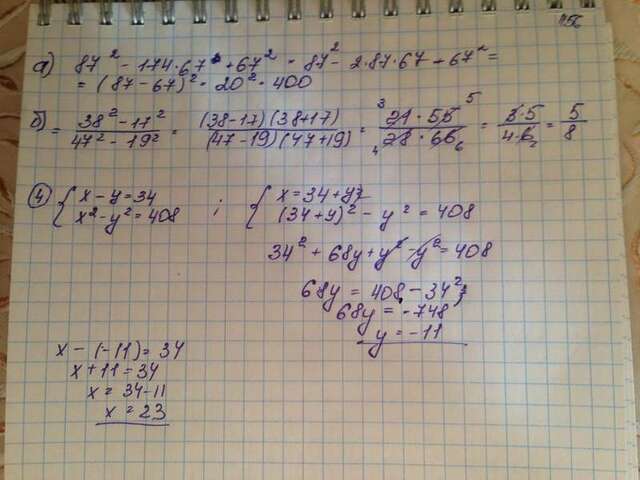 156
а) 87² - 174·67 + 67² = 87² - 2·87·67 + 67² =
= (87-67)² = 20² = 400
б) = 38² - 17² / 47² - 19² = (38-17)(38+17) / (47-19)(47+19) = ³21 · 55⁵ / ₄28 · 66₆ = 3·5 / 4·6₂ = 5 / 8
④ { x - y = 34 ; { x = 34 + y
x² - y² = 408 (34+y)² - y² = 408
34² + 68y + y² - y² = 408
68y = 408 - 34²;
68y = -748
y = -11
x - (-11) = 34
x + 11 = 34
x = 34 - 11
x = 23